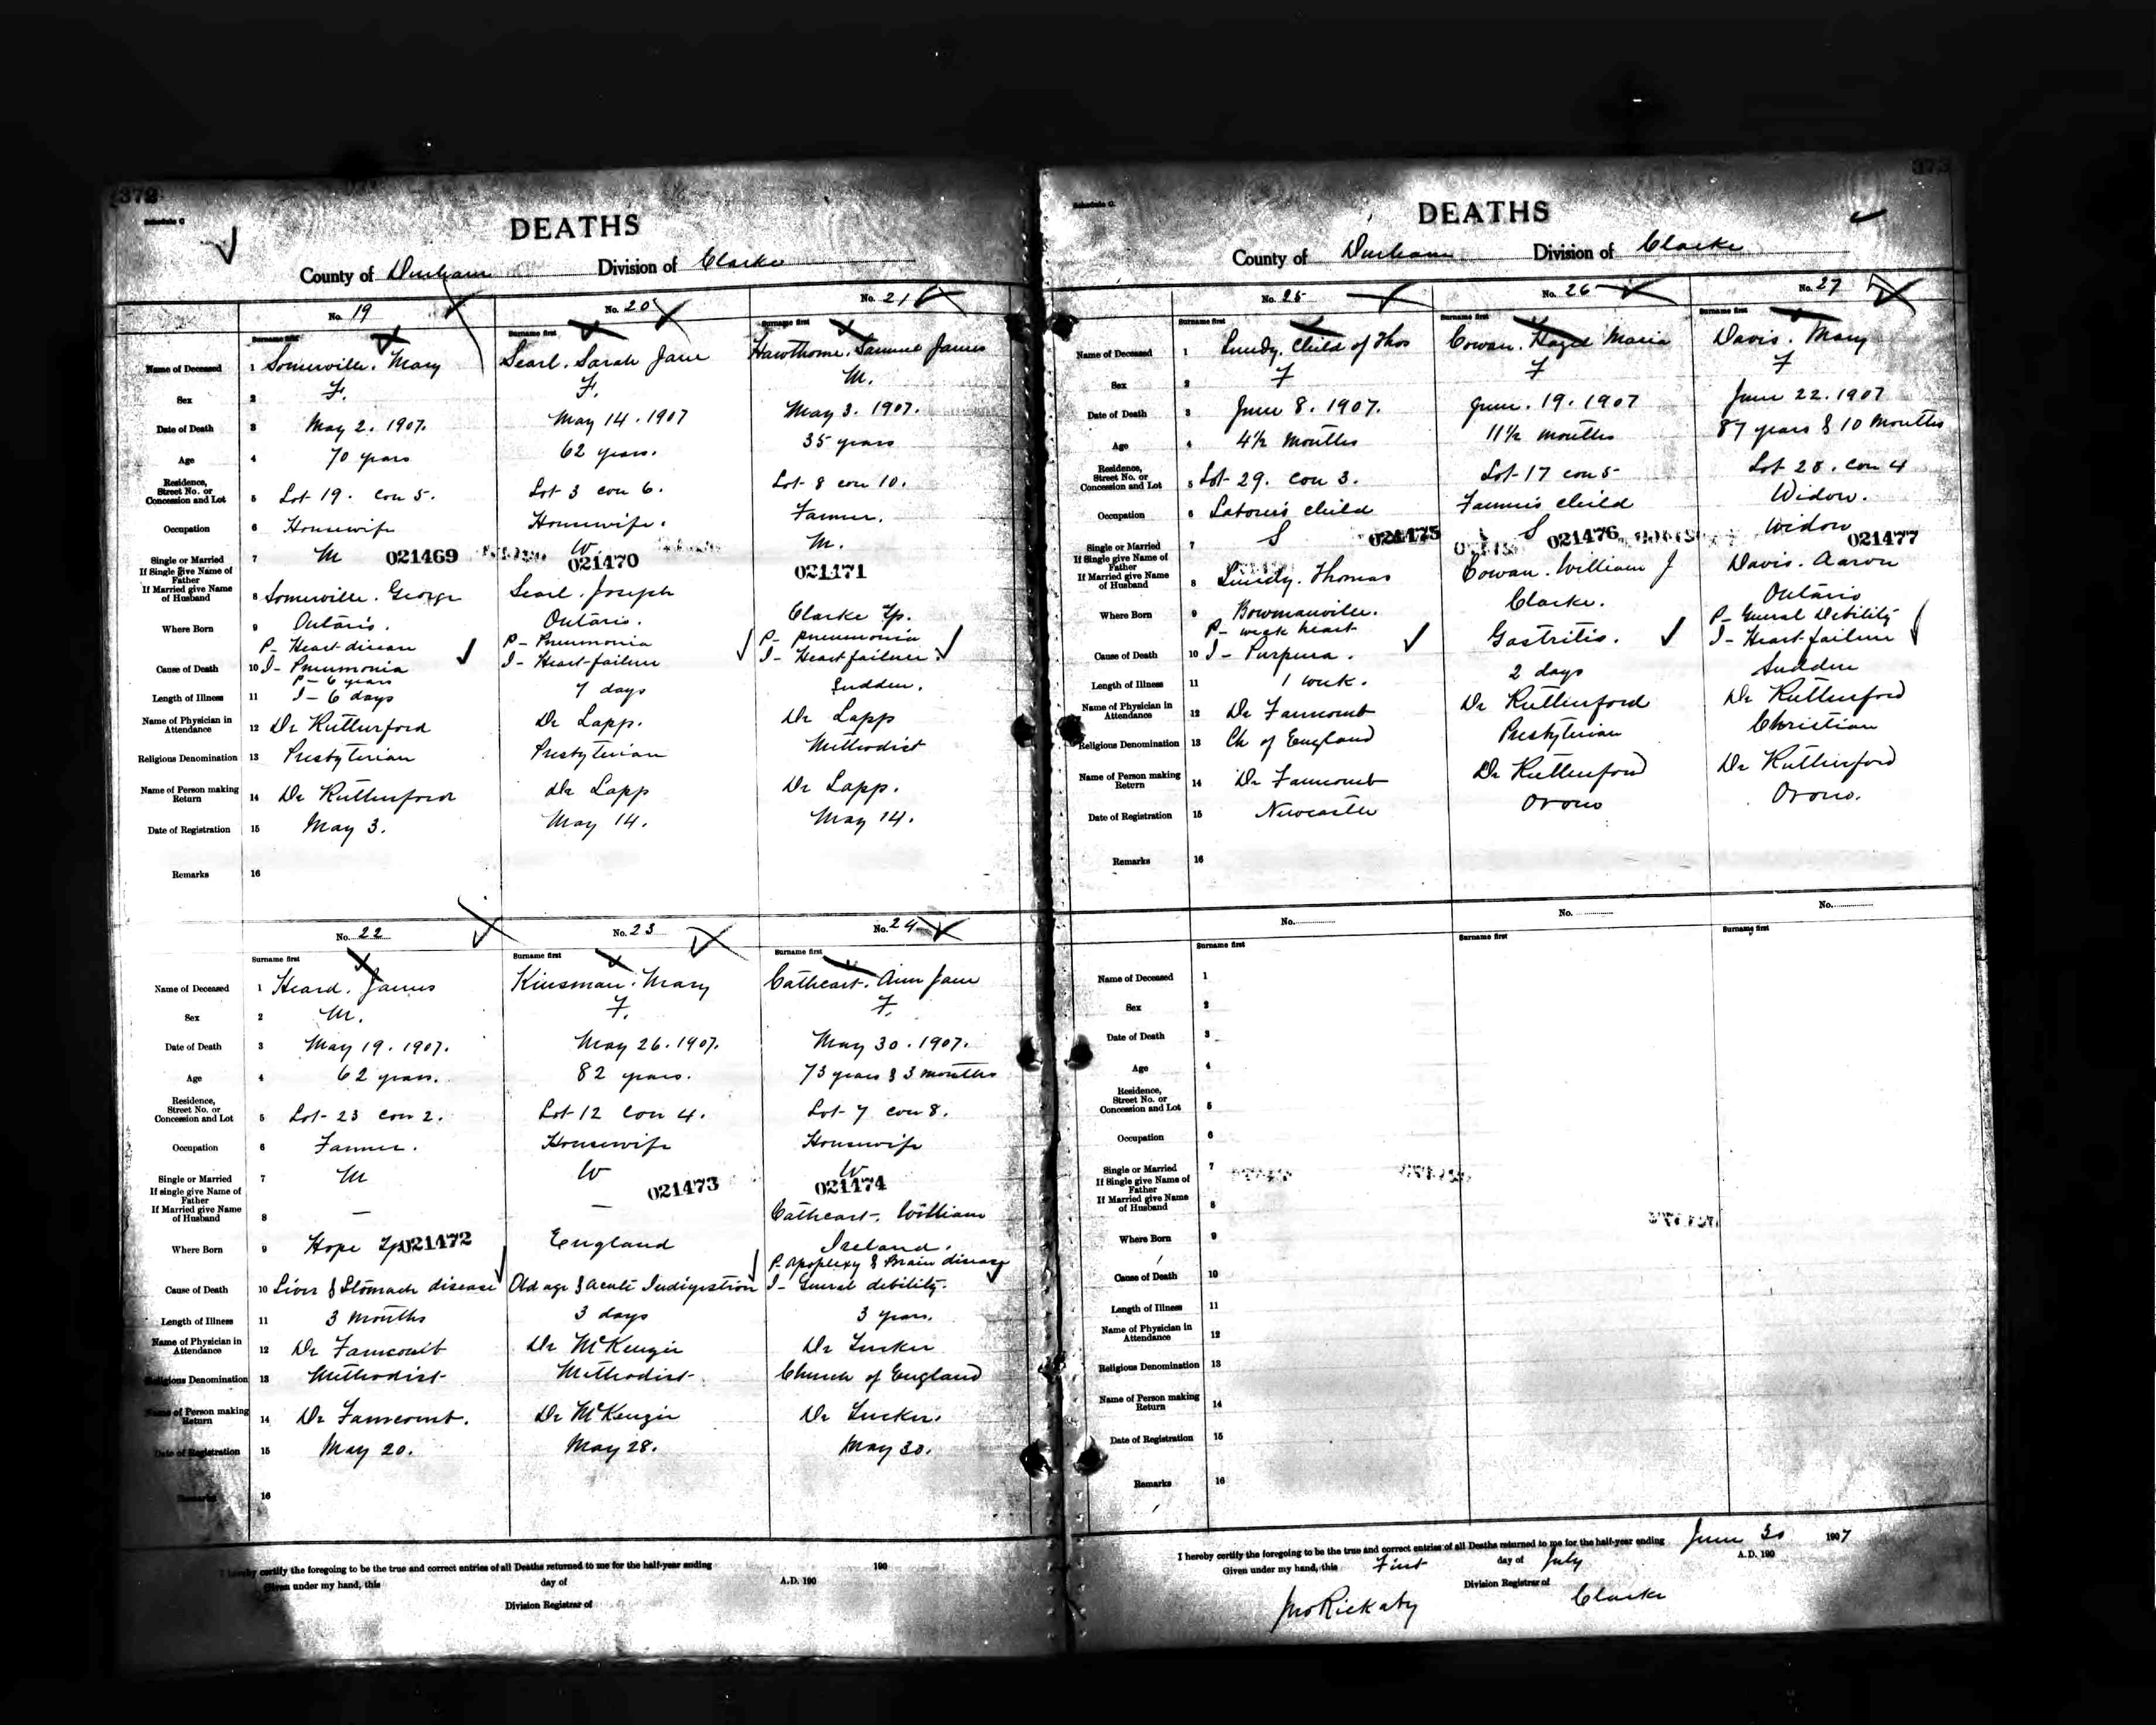 372
Schedule C
DEATHS
County of Durham Division of Clarke
No. 19 No. 20 No. 21
Surname first Surname first Surname first
Name of Deceased 1 Somerville. Mary Searl. Sarah Jane Hawthorne. Samuel James
Sex 2 F. F. M.
Date of Death 3 May 2. 1907. May 14. 1907 May 3. 1907.
Age 4 70 years 62 years. 35 years
Residence, Street No. or Concession and Lot 5 Lot 19. Con 5. Lot 3 con 6. Lot 8 con 10.
Occupation 6 Housewife Housewife. Farmer.
Single or Married 7 M 021469 W. 021470 M. 021471
If Single give Name of Father If Married give Name of Husband 8 Somerville. George Searl. Joseph
Where Born 9 Ontario. Ontario. Clarke Tp.
Cause of Death 10 P- Heart disease I- Pneumonia P- Pneumonia I- Heart failure P- pneumonia I- Heart failure.
Length of Illness 11 P- 6 years I- 6 days 7 days Sudden.
Name of Physician in Attendance 12 Dr Rutherford Dr Lapp. Dr Lapp
Religious Denomination 13 Presbyterian Presbyterian Methodist
Name of Person making Return 14 Dr Rutherford Dr Lapp Dr Lapp.
Date of Registration 15 May 3. May 14. May 14.
Remarks 16
No. 22 No. 23 No. 24
Surname first Surname first Surname first
Name of Deceased 1 Heard. James Kinsman. Mary Cathcart. Ann Jane
Sex 2 M. F. F.
Date of Death 3 May 19. 1907. May 26. 1907. May 30. 1907.
Age 4 62 years. 82 years. 73 years & 3 months
Residence, Street No. or Concession and Lot 5 Lot 23 con 2. Lot 12 Con 4. Lot 7 con 8.
Occupation 6 Farmer. Housewife Housewife
Single or Married 7 M W 021473 W 021474
If single give Name of Father If Married give Name of Husband 8 — — Cathcart. William
Where Born 9 Hope Tp 021472 England Ireland.
Cause of Death 10 Liver & Stomach disease Old age & acute Indigestion P- apoplexy & Brain disease I- General debility.
Length of Illness 11 3 months 3 days 3 years.
Name of Physician in Attendance 12 Dr Farncomb Dr McKenzie Dr Tucker
Religious Denomination 13 Methodist Methodist. Church of England
Name of Person making Return 14 Dr Farncomb. Dr McKenzie Dr Tucker.
Date of Registration 15 May 20. May 28. May 30.
Remarks 16
I hereby certify the foregoing to be the true and correct entries of all Deaths returned to me for the half-year ending 190
Given under my hand, this day of A.D. 190
Division Registrar of
373
Schedule C.
DEATHS
County of Durham Division of Clarke
No. 25 No. 26 No. 27
Surname first Surname first Surname first
Name of Deceased 1 Lundy. Child of Thos Cowan. Hazel Maria Davis. Mary
Sex 2 F F F
Date of Death 3 June 8. 1907. June. 19. 1907 June 22. 1907
Age 4 4½ months 11½ months 87 years & 10 months
Residence, Street No. or Concession and Lot 5 Lot 29. con 3. Lot 17 con 5 Lot 28. con 4
Occupation 6 Laborer's child Farmer's child Widow.
Single or Married 7 S 021475 S 021476 Widow 021477
If Single give Name of Father If Married give Name of Husband 8 Lundy. Thomas Cowan. William J Davis. Aaron
Where Born 9 Bowmanville. Clarke. Ontario
Cause of Death 10 P- weak heart I- Purpura. Gastritis. P- General Debility I- Heart failure
Length of Illness 11 1 week. 2 days Sudden
Name of Physician in Attendance 12 Dr Farncomb Dr Rutherford Dr Rutherford
Religious Denomination 13 Ch of England Presbyterian Christian
Name of Person making Return 14 Dr Farncomb Dr Rutherford Dr Rutherford
Date of Registration 15 Newcastle Orono Orono.
Remarks 16
No. No. No.
Surname first Surname first Surname first
Name of Deceased 1
Sex 2
Date of Death 3
Age 4
Residence, Street No. or Concession and Lot 5
Occupation 6
Single or Married 7
If Single give Name of Father If Married give Name of Husband 8
Where Born 9
Cause of Death 10
Length of Illness 11
Name of Physician in Attendance 12
Religious Denomination 13
Name of Person making Return 14
Date of Registration 15
Remarks 16
I hereby certify the foregoing to be the true and correct entries of all Deaths returned to me for the half-year ending June 30 1907
Given under my hand, this First day of July A.D. 190
Jno Rickaby Division Registrar of Clarke